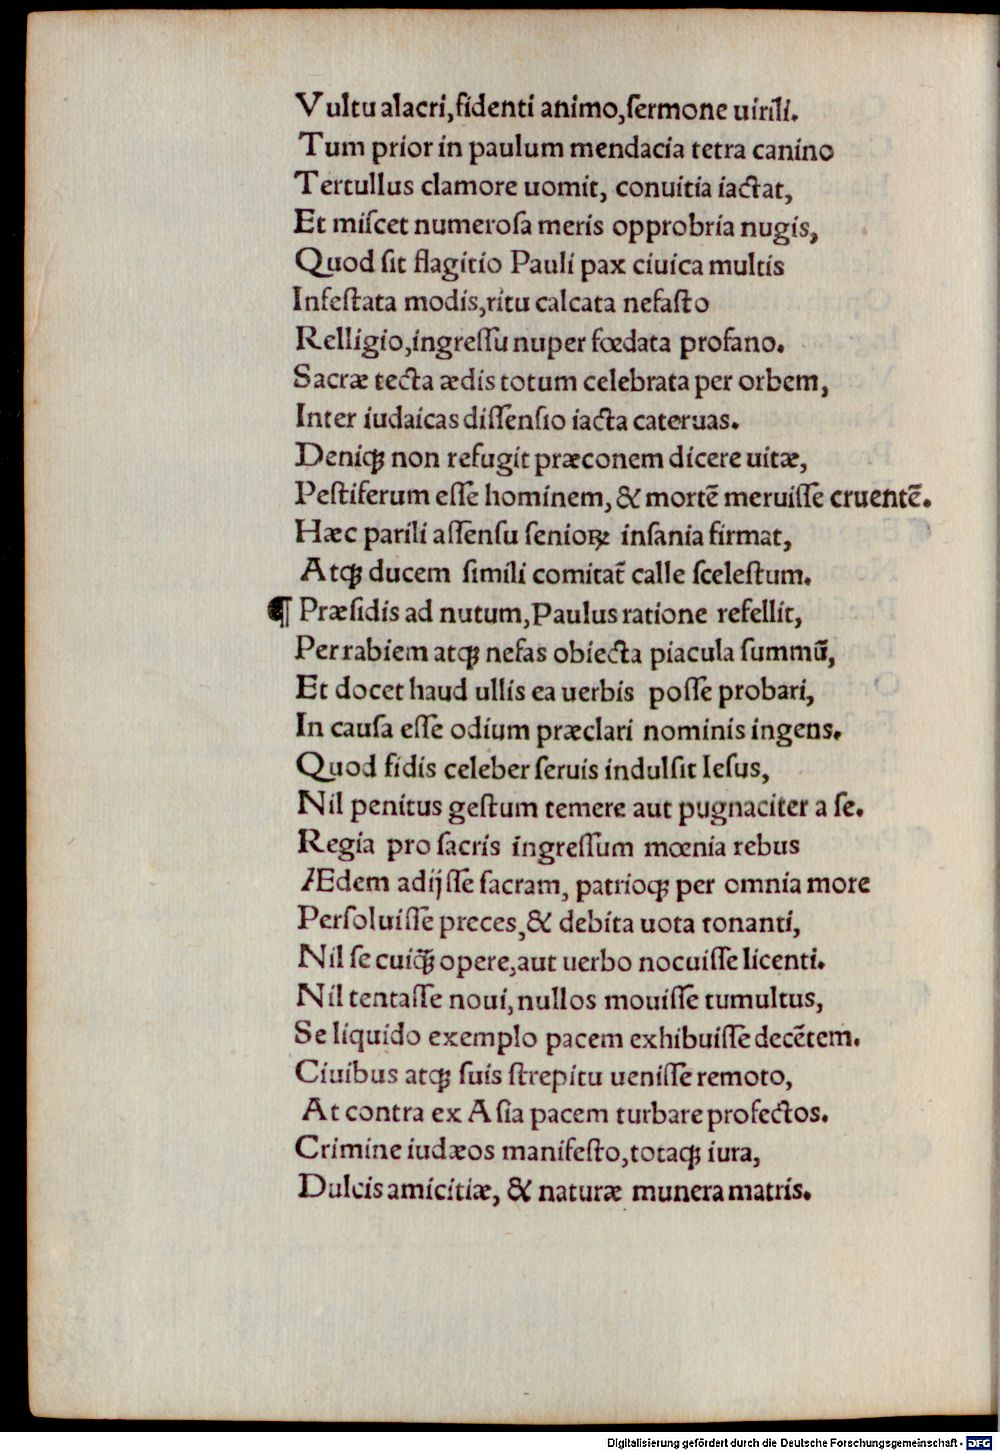 Vultu alacri, fidenti animo, ſermone uirili.
Tum prior in paulum mendacia tetra canino
Tertullus clamore uomit, conuitia iactat,
Et miſcet numeroſa meris opprobria nugis,
Quod ſit flagitio Pauli pax ciuica multis
Infeſtata modis, ritu calcata nefaſto
Relligio, ingreſſu nuper fœdata profano.
Sacræ tecta ædis totum celebrata per orbem,
Inter iudaicas diſſenſio iacta cateruas.
Deniqꝫ non refugit præconem dicere uitæ,
Peſtiferum eſſe hominem, & mortē meruiſſe cruentē.
Hæc parili aſſenſu senioꝝ inſania firmat,
Atqꝫ ducem ſimili comitat̃ calle ſceleſtum.
¶ Præſidis ad nutum, Paulus ratione refellit,
Per rabiem atqꝫ nefas obiecta piacula ſummū,
Et docet haud ullis ea uerbis poſſe probari,
In cauſa eſſe odium præclari nominis ingens.
Quod fidis celeber ſeruis indulſit Ieſus,
Nil penitus geſtum temere aut pugnaciter a ſe.
Regia pro ſacris ingreſſum mœnia rebus
Ædem adijſſe ſacram, patrioqꝫ per omnia more
Perſoluiſſe preces, & debita uota tonanti,
Nil ſe cuiq̃ꝫ opere, aut uerbo nocuiſſe licenti.
Nil tentaſſe noui, nullos mouiſſe tumultus,
Se liquido exemplo pacem exhibuiſſe decētem.
Ciuibus atqꝫ ſuis ſtrepitu ueniſſe remoto,
At contra ex Aſia pacem turbare profectos.
Crimine iudæos manifeſto, totaqꝫ iura,
Dulcis amicitiæ, & naturæ munera matris.
Digitalisierung gefördert durch die Deutsche Forschungsgemeinschaft - DFG